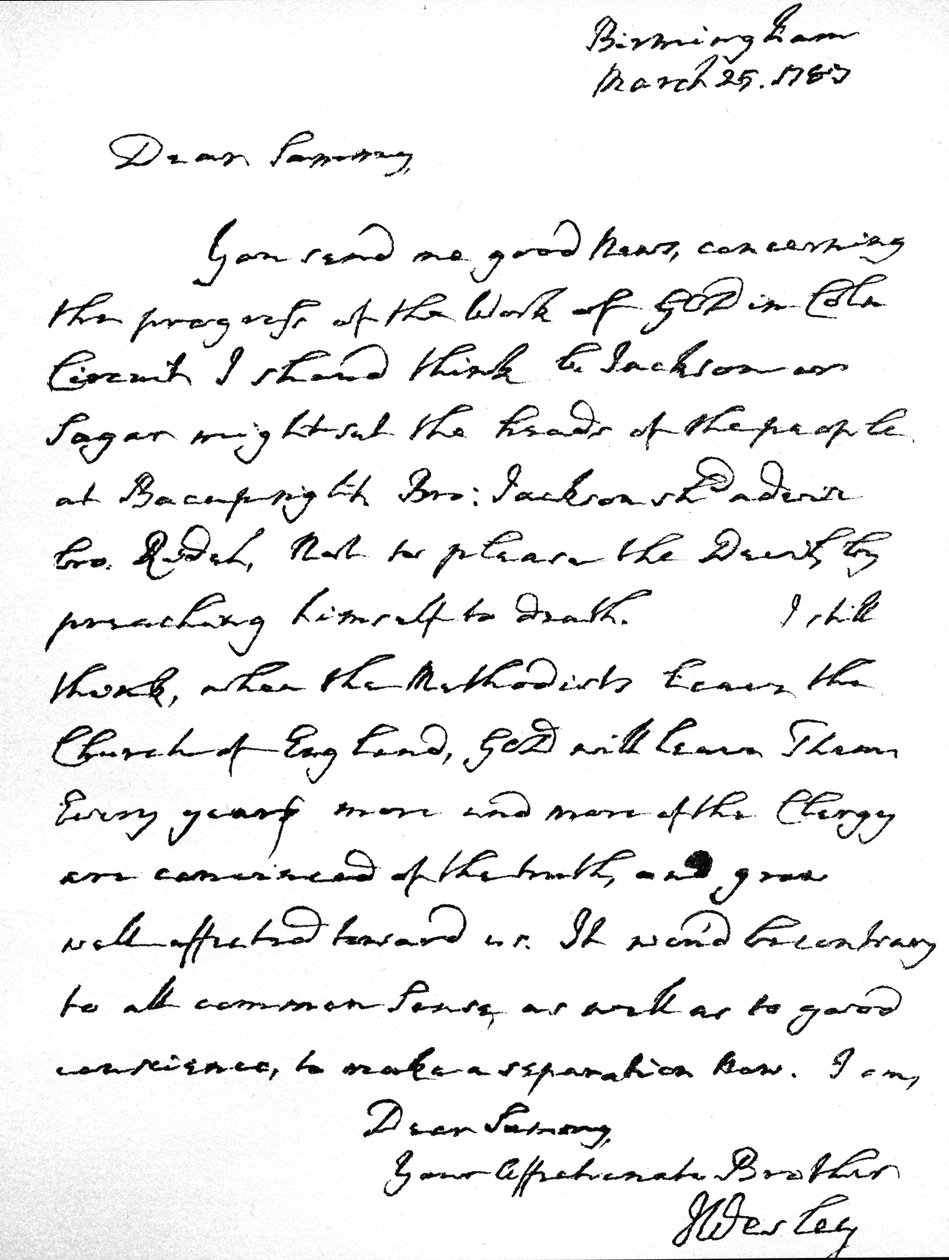 Birmingham
March 25. 1787
Dear Sammy,
You send me good News, concerning
the progress of the Work of GOD in Coln
Circuit I should think b. Jackson or
Sagar might set the heads of the people
at Bacup right. Bro: Jackson shd advise
bro. Ridel, Not to please the Devil, by
preaching himself to death. I still
think, when the Methodists leave the
Church of England, GOD will leave Them
Every year more and more of the Clergy
are convinced of the truth, and grow
well-affected toward us. It wou'd be contrary
to all common Sense, as well as to good
conscience, to make a separation now. I am,
Dear Sammy,
Your Affectionate Brother
JWesley